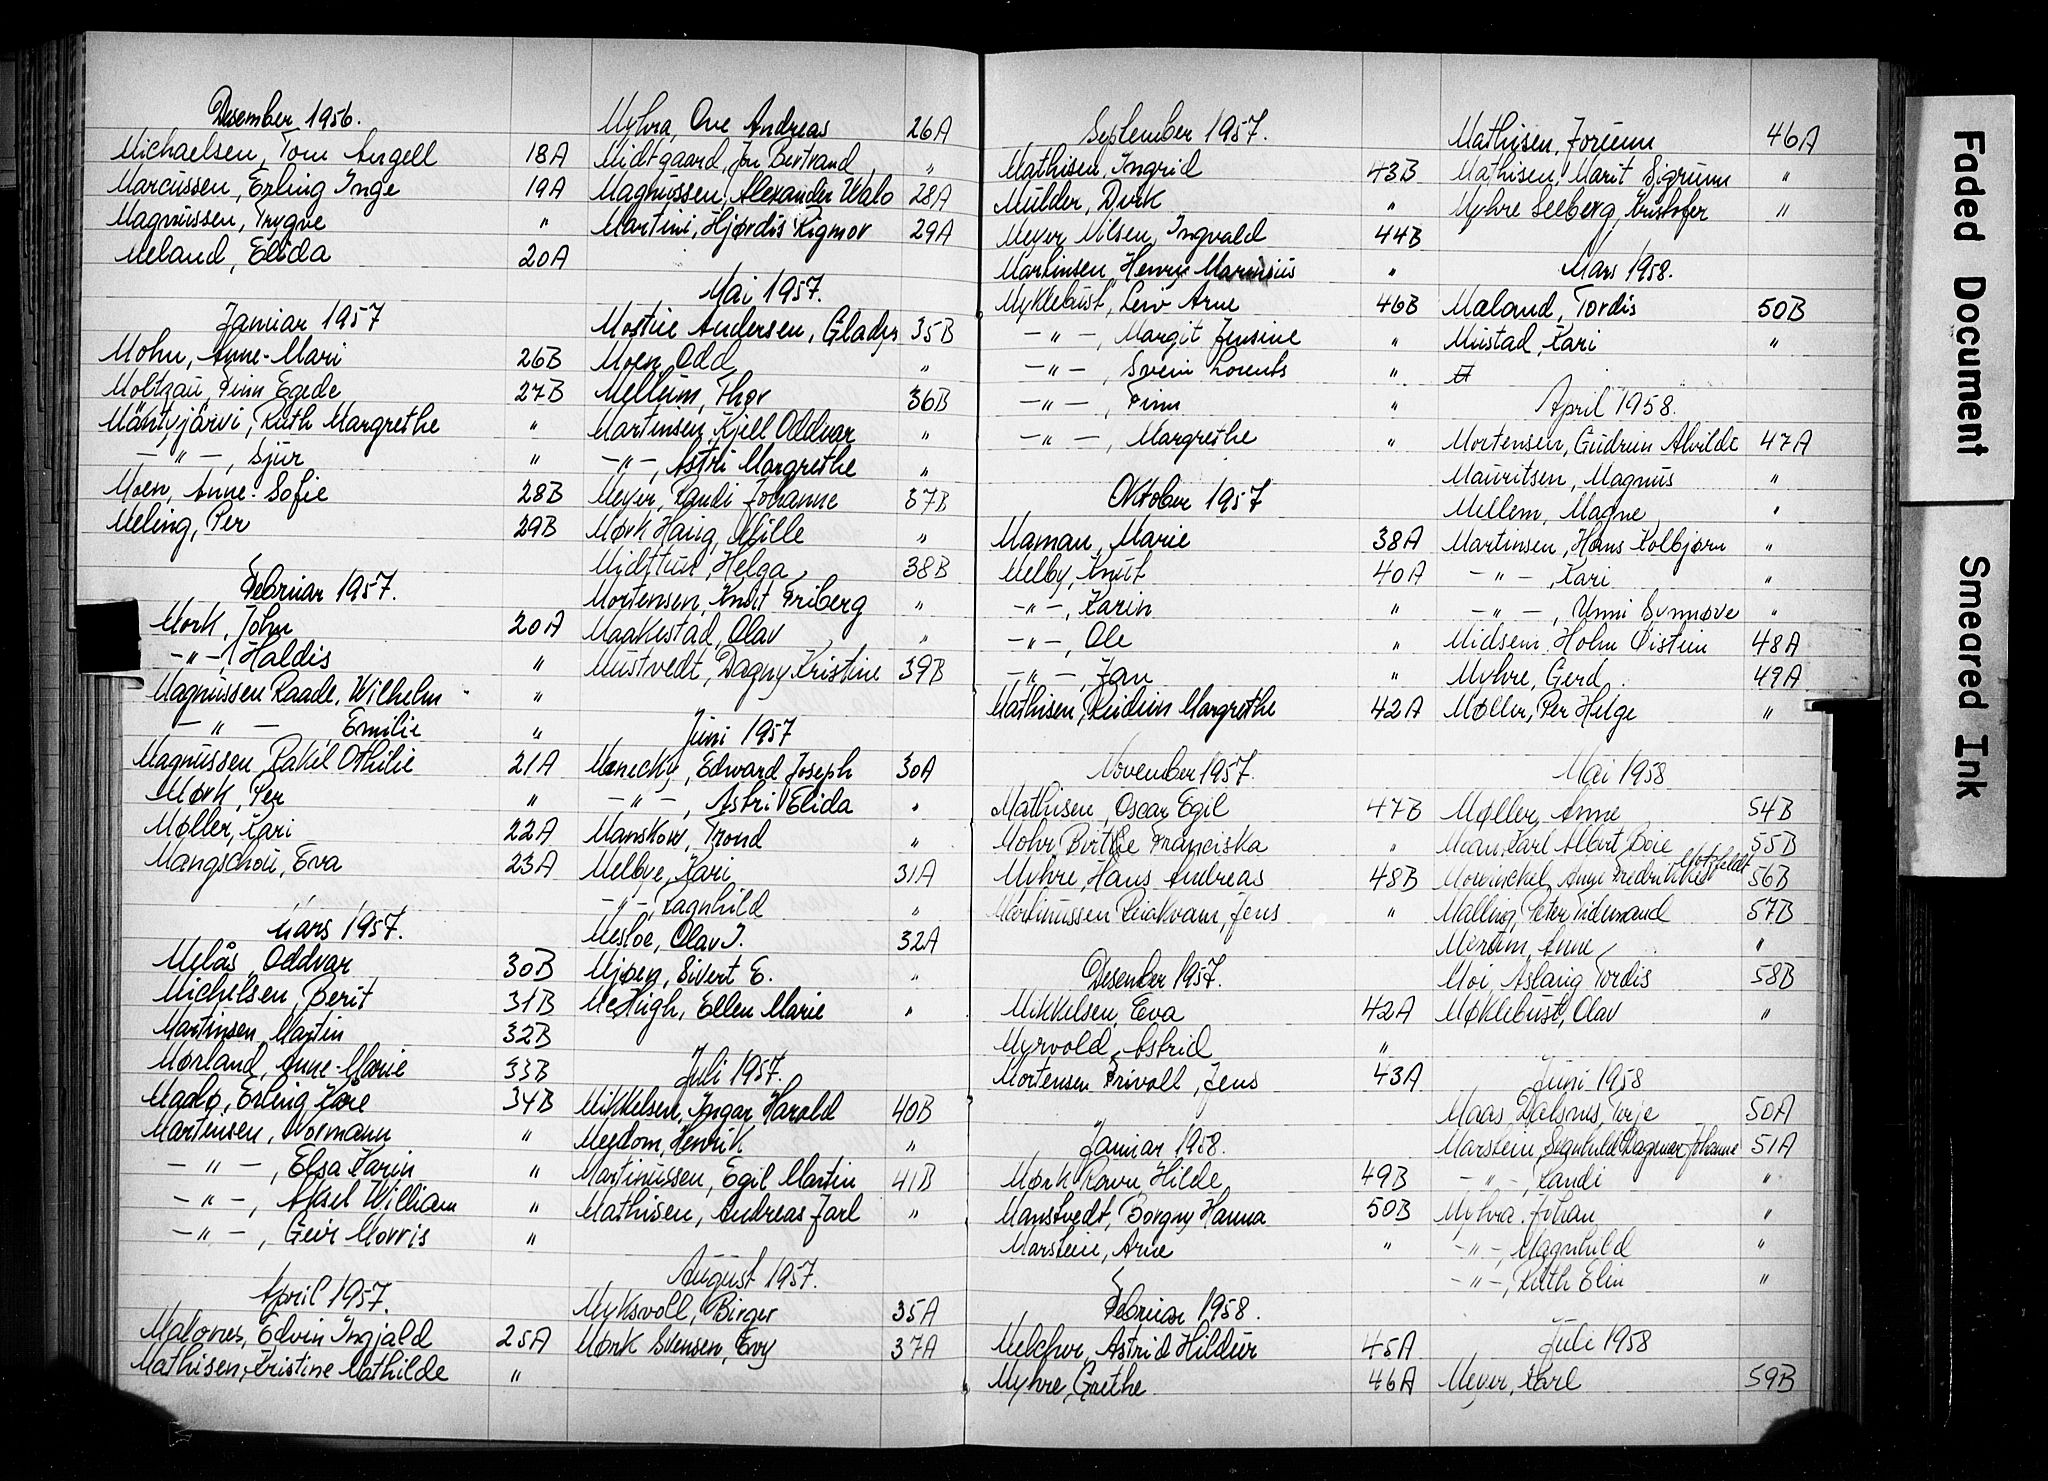 Desember 1956.
Michaelsen, Tom Angell 18A
Marcussen, Erling Inge 19A
Magnussen, Trygve "
Meland, Elida 20A
Januar 1957
Mohn, Anne-Mari 26B
Moltzau, Finn Egede 27B
Mäntyjärvi, Ruth Margrethe "
— " —, Sjur "
Moen, Anne-Sofie 28B
Meling, Per 29B
Februar 1957.
Mork, John 20A
— " —, Haldis "
Magnussen Raade, Wilhelm "
— " — Emilie "
Magnussen, Rakel Othilie 21A
Mørk, Per "
Møller, Kari 22A
Mangschou, Eva 23A
Mars 1957.
Melås, Oddvar 30B
Michelsen, Berit 31B
Martinsen, Martin 32B
Mørland, Anne-Marie 33B
Maalø, Erling Kåre 34B
Martensen, Normann "
— " —, Elsa Karin "
— " —, Aksel William "
— " —, Geir Morris "
April 1957.
Malones, Edvin Ingjald 25A
Mathisen, Kristine Mathilde "
Myhra, Ove Andreas 26A
Midtgaard, Jon Bertrand "
Magnussen, Alexander Walo 28A
Martini, Hjørdis Rigmor 29A
Mai 1957.
Mostue Andersen, Gladys 35B
Moen, Odd "
Mellum, Thor 36B
Martinsen, Kjell Oddvar "
— " —, Astri Margrethe "
Meyer, Randi Johanne 37B
Mørk Haug, Mille "
Midttun, Helga 38B
Mortensen, Knut Friberg "
Maakestad, Olav "
Mustvedt, Dagny Kristine 39B
Juni 1957
Monecky, Edward Joseph 30A
— " —, Astri Elida "
Manskow, Trond "
Melbye, Kari 31A
— " —, Ragnhild "
Mesloe, Olav J. 32A
Mjøen, Sivert E. "
McHugh, Ellen Marie "
Juli 1957.
Mikkelsen, Ingar Harald 40B
Meedom, Henrik "
Martinussen, Egil Martin 41B
Mathisen, Andreas Jarl "
August 1957.
Myksvoll, Birger 35A
Mørk Svensen, Evy 37A
September 1957.
Mathisen, Ingrid 43B
Mulder, Dirk "
Meyer Nilsen, Ingvald 44B
Martinsen, Henry Marinius "
Myklebust, Leiv Arne 46B
— " —, Margit Jensine "
— " —, Svein Lorents "
— " —, Finn "
— " —, Margrethe "
Oktober 1957
Maman, Marie 38A
Melby, Knut 40A
— " —, Karin "
— " —, Ole "
— " —, Jan "
Mathisen, Reidun Margrethe 42A
November 1957.
Mathisen, Oscar Egil 47B
Mohr, Birthe Franciska "
Myhre, Hans Andreas 48B
Martinussen, Jens "
Desember 1957.
Mikkelsen, Eva 42A
Myrvold, Astrid "
Mortensen Frivoll, Jens 43A
Januar 1958.
Mørk Ravn, Hilde 49B
Manstvedt, Borgny Hanna 50B
Marstein, Arne "
Februar 1958.
Melchor, Astrid Hildur 45A
Myhre, Grethe 46A
Mathisen, Jorunn 46A
Mathisen, Marit Sigrunn "
Myhre Seeberg, Kristofer "
Mars 1958.
Mæland, Tordis 50B
Mustad, Kari "
April 1958.
Mortensen, Gudrun Alvilde 47A
Mauritsen, Magnus "
Mellem, Magne "
Martinsen, Hans Kolbjørn "
— " —, Kari "
— " —, Unni Synnøve "
Midsem, Holm Øistein 48A
Myhre, Gerd 49A
Møller, Per Helge "
Mai 1958
Møller, Anne 54B
Moan, Karl Albert Boie 55B
Mowinckel, Anne Fredrikke Motzfeldt 56B
Malling, Peter Tidemand 57B
Morum, Anne "
Moi, Aslaug Tordis 58B
Møklebust, Olav "
Juni 1958
Maas Dalsnes, Terje 50A
Marstein, Dagmar Johanne 51A
— " —, Randi "
Myhra, Johan "
— " —, Magnhild "
— " —, Ruth Elin "
Juli 1958
Meyer, Karl 59B
Faded Document
Smeared Ink